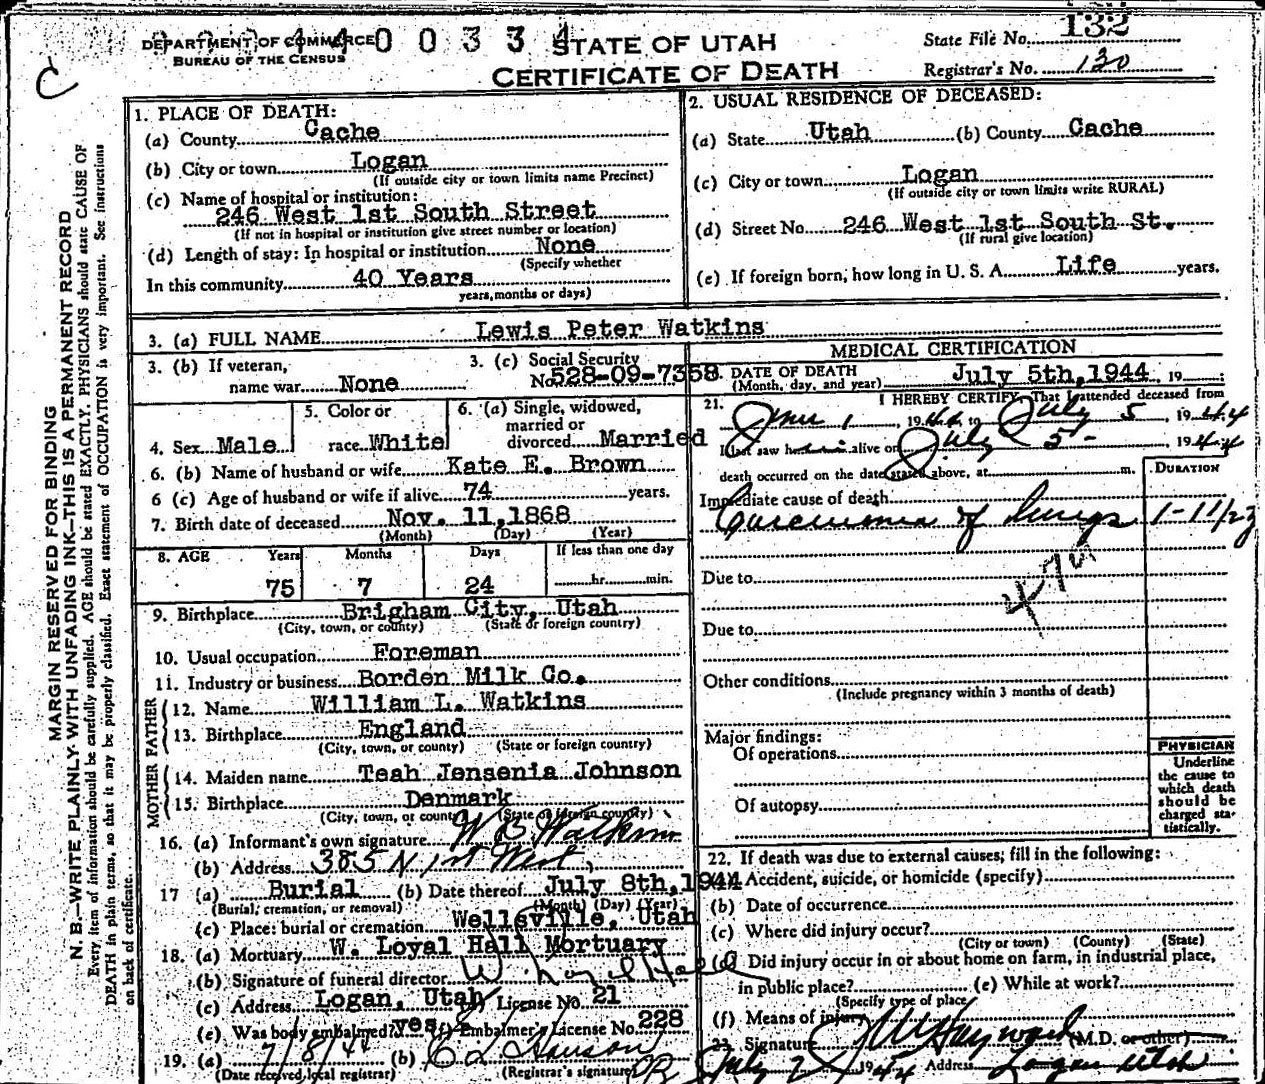 DEPARTMENT OF COMMERCE
BUREAU OF THE CENSUS
4 4 0 0 3 3 4
STATE OF UTAH
CERTIFICATE OF DEATH
State File No. 132
Registrar's No. 130
C
MARGIN RESERVED FOR BINDING
N. B.—WRITE PLAINLY WITH UNFADING INK—THIS IS A PERMANENT RECORD
Every item of information should be carefully supplied. AGE should be stated EXACTLY. PHYSICIANS should state CAUSE OF
DEATH in plain terms, so that it may be properly classified. Exact statement of OCCUPATION is very important. See instructions
on back of certificate.
1. PLACE OF DEATH:
(a) County Cache
(b) City or town Logan
(If outside city or town limits name Precinct)
(c) Name of hospital or institution:
246 West 1st South Street
(If not in hospital or institution give street number or location)
(d) Length of stay: In hospital or institution None
(Specify whether
In this community 40 Years
years, months or days)
2. USUAL RESIDENCE OF DECEASED:
(a) State Utah (b) County Cache
(c) City or town Logan
(If outside city or town limits write RURAL)
(d) Street No. 246 West 1st South St.
(If rural give location)
(e) If foreign born, how long in U. S. A. Life years.
3. (a) FULL NAME Lewis Peter Watkins
3. (b) If veteran,
name war None
3. (c) Social Security
No. 528-09-7358
4. Sex Male
5. Color or
race White
6. (a) Single, widowed,
married or
divorced Married
6. (b) Name of husband or wife Kate E. Brown
6 (c) Age of husband or wife if alive 74 years.
7. Birth date of deceased Nov. 11,1868
(Month) (Day) (Year)
8. AGE Years Months Days If less than one day
75 7 24 hr. min.
9. Birthplace Brigham City, Utah
(City, town, or county) (State or foreign country)
10. Usual occupation Foreman
11. Industry or business Borden Milk Co.
FATHER
12. Name William L. Watkins
13. Birthplace England
(City, town, or county) (State or foreign country)
MOTHER
14. Maiden name Teah Jensenia Johnson
15. Birthplace Denmark
(City, town, or county) (State or foreign country)
16. (a) Informant's own signature W B Watkins
(b) Address 385 N 1st West
17 (a) Burial (b) Date thereof July 8th,1944
(Burial, cremation, or removal) (Month) (Day) (Year)
(c) Place: burial or cremation Wellsville, Utah
18. (a) Mortuary W. Loyal Hall Mortuary
(b) Signature of funeral director W. Loyal Hall
(c) Address Logan, Utah License No. 21
(e) Was body embalmed? yes (f) Embalmer's License No. 228
19. (a) 7/8/44 (b) C L Hanson
(Date received local registrar) (Registrar's signature)
MEDICAL CERTIFICATION
DATE OF DEATH
(Month, day, and year) July 5th,1944, 19
21. I HEREBY CERTIFY, That I attended deceased from
1, 1944, to July 5, 1944
I last saw him alive on July 5-, 1944
death occurred on the date stated above, at m.
DURATION
Immediate cause of death
Carcinoma of lungs
Due to
Due to
Other conditions
(Include pregnancy within 3 months of death)
Major findings:
Of operations
Of autopsy
PHYSICIAN
Underline
the cause to
which death
should be
charged sta-
tistically.
22. If death was due to external causes, fill in the following:
Accident, suicide, or homicide (specify)
(b) Date of occurrence
(c) Where did injury occur?
(City or town) (County) (State)
(d) Did injury occur in or about home on farm, in industrial place,
in public place? (e) While at work?
(Specify type of place
(f) Means of injury
23. Signature Hayward (M.D. or other)
July 1944 Address Logan Utah